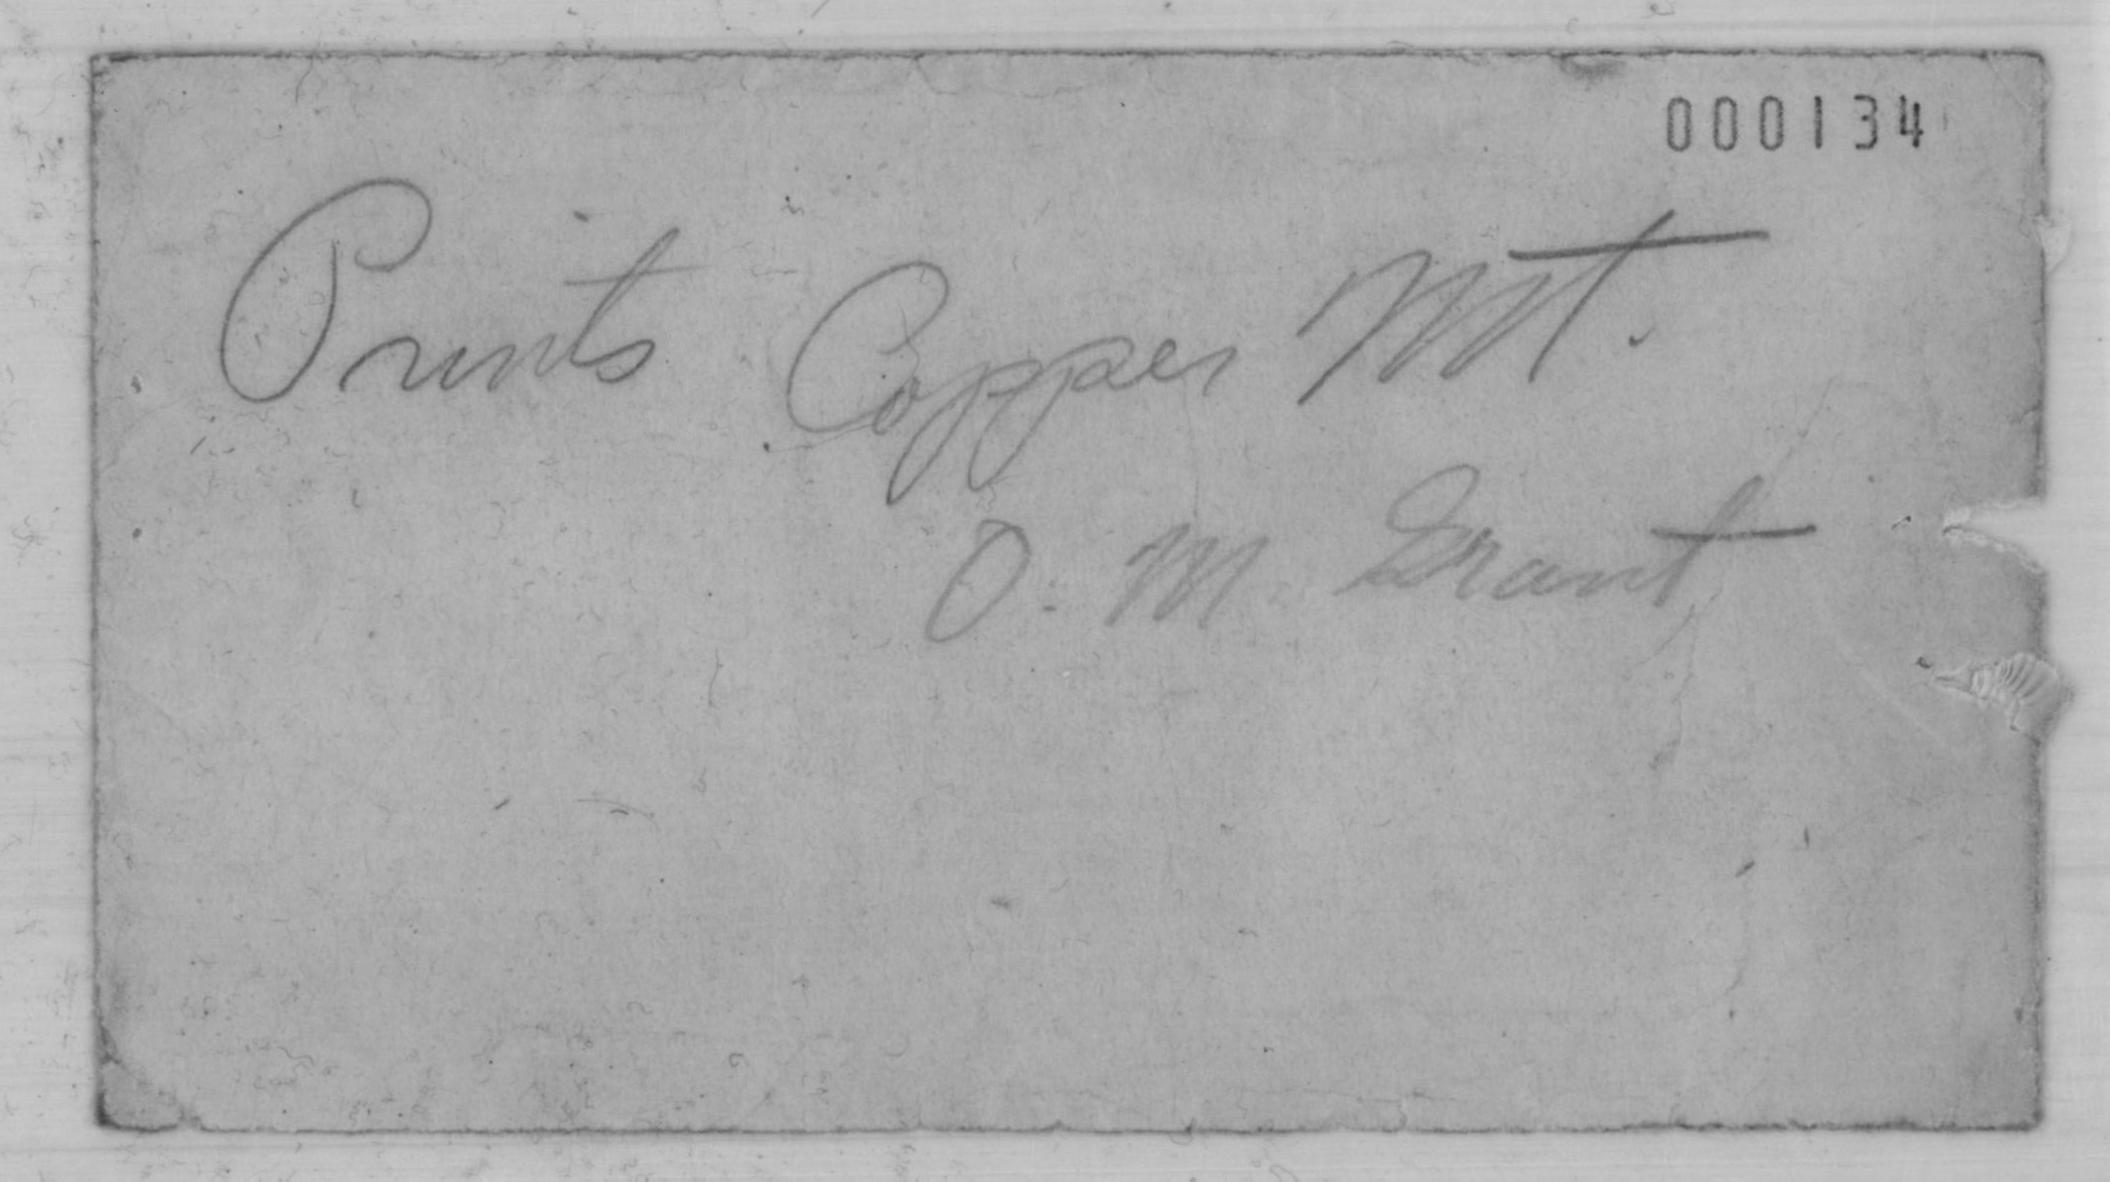 000134
Prints Copper Mt.
O. M. Grant